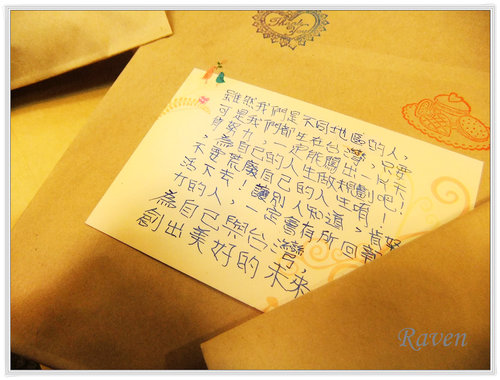 Thank
You
雖然我們是不同地區的人,
可是我們都生在台灣,只要
肯努力,一定能闖出一片天
,為自己的人生做規劃吧!
不要荒廢自己的人生唷!!
活下去!讓別人知道,肯努
力的人,一定會有所回報
為自己與台灣,
創出美好的未來
Raven